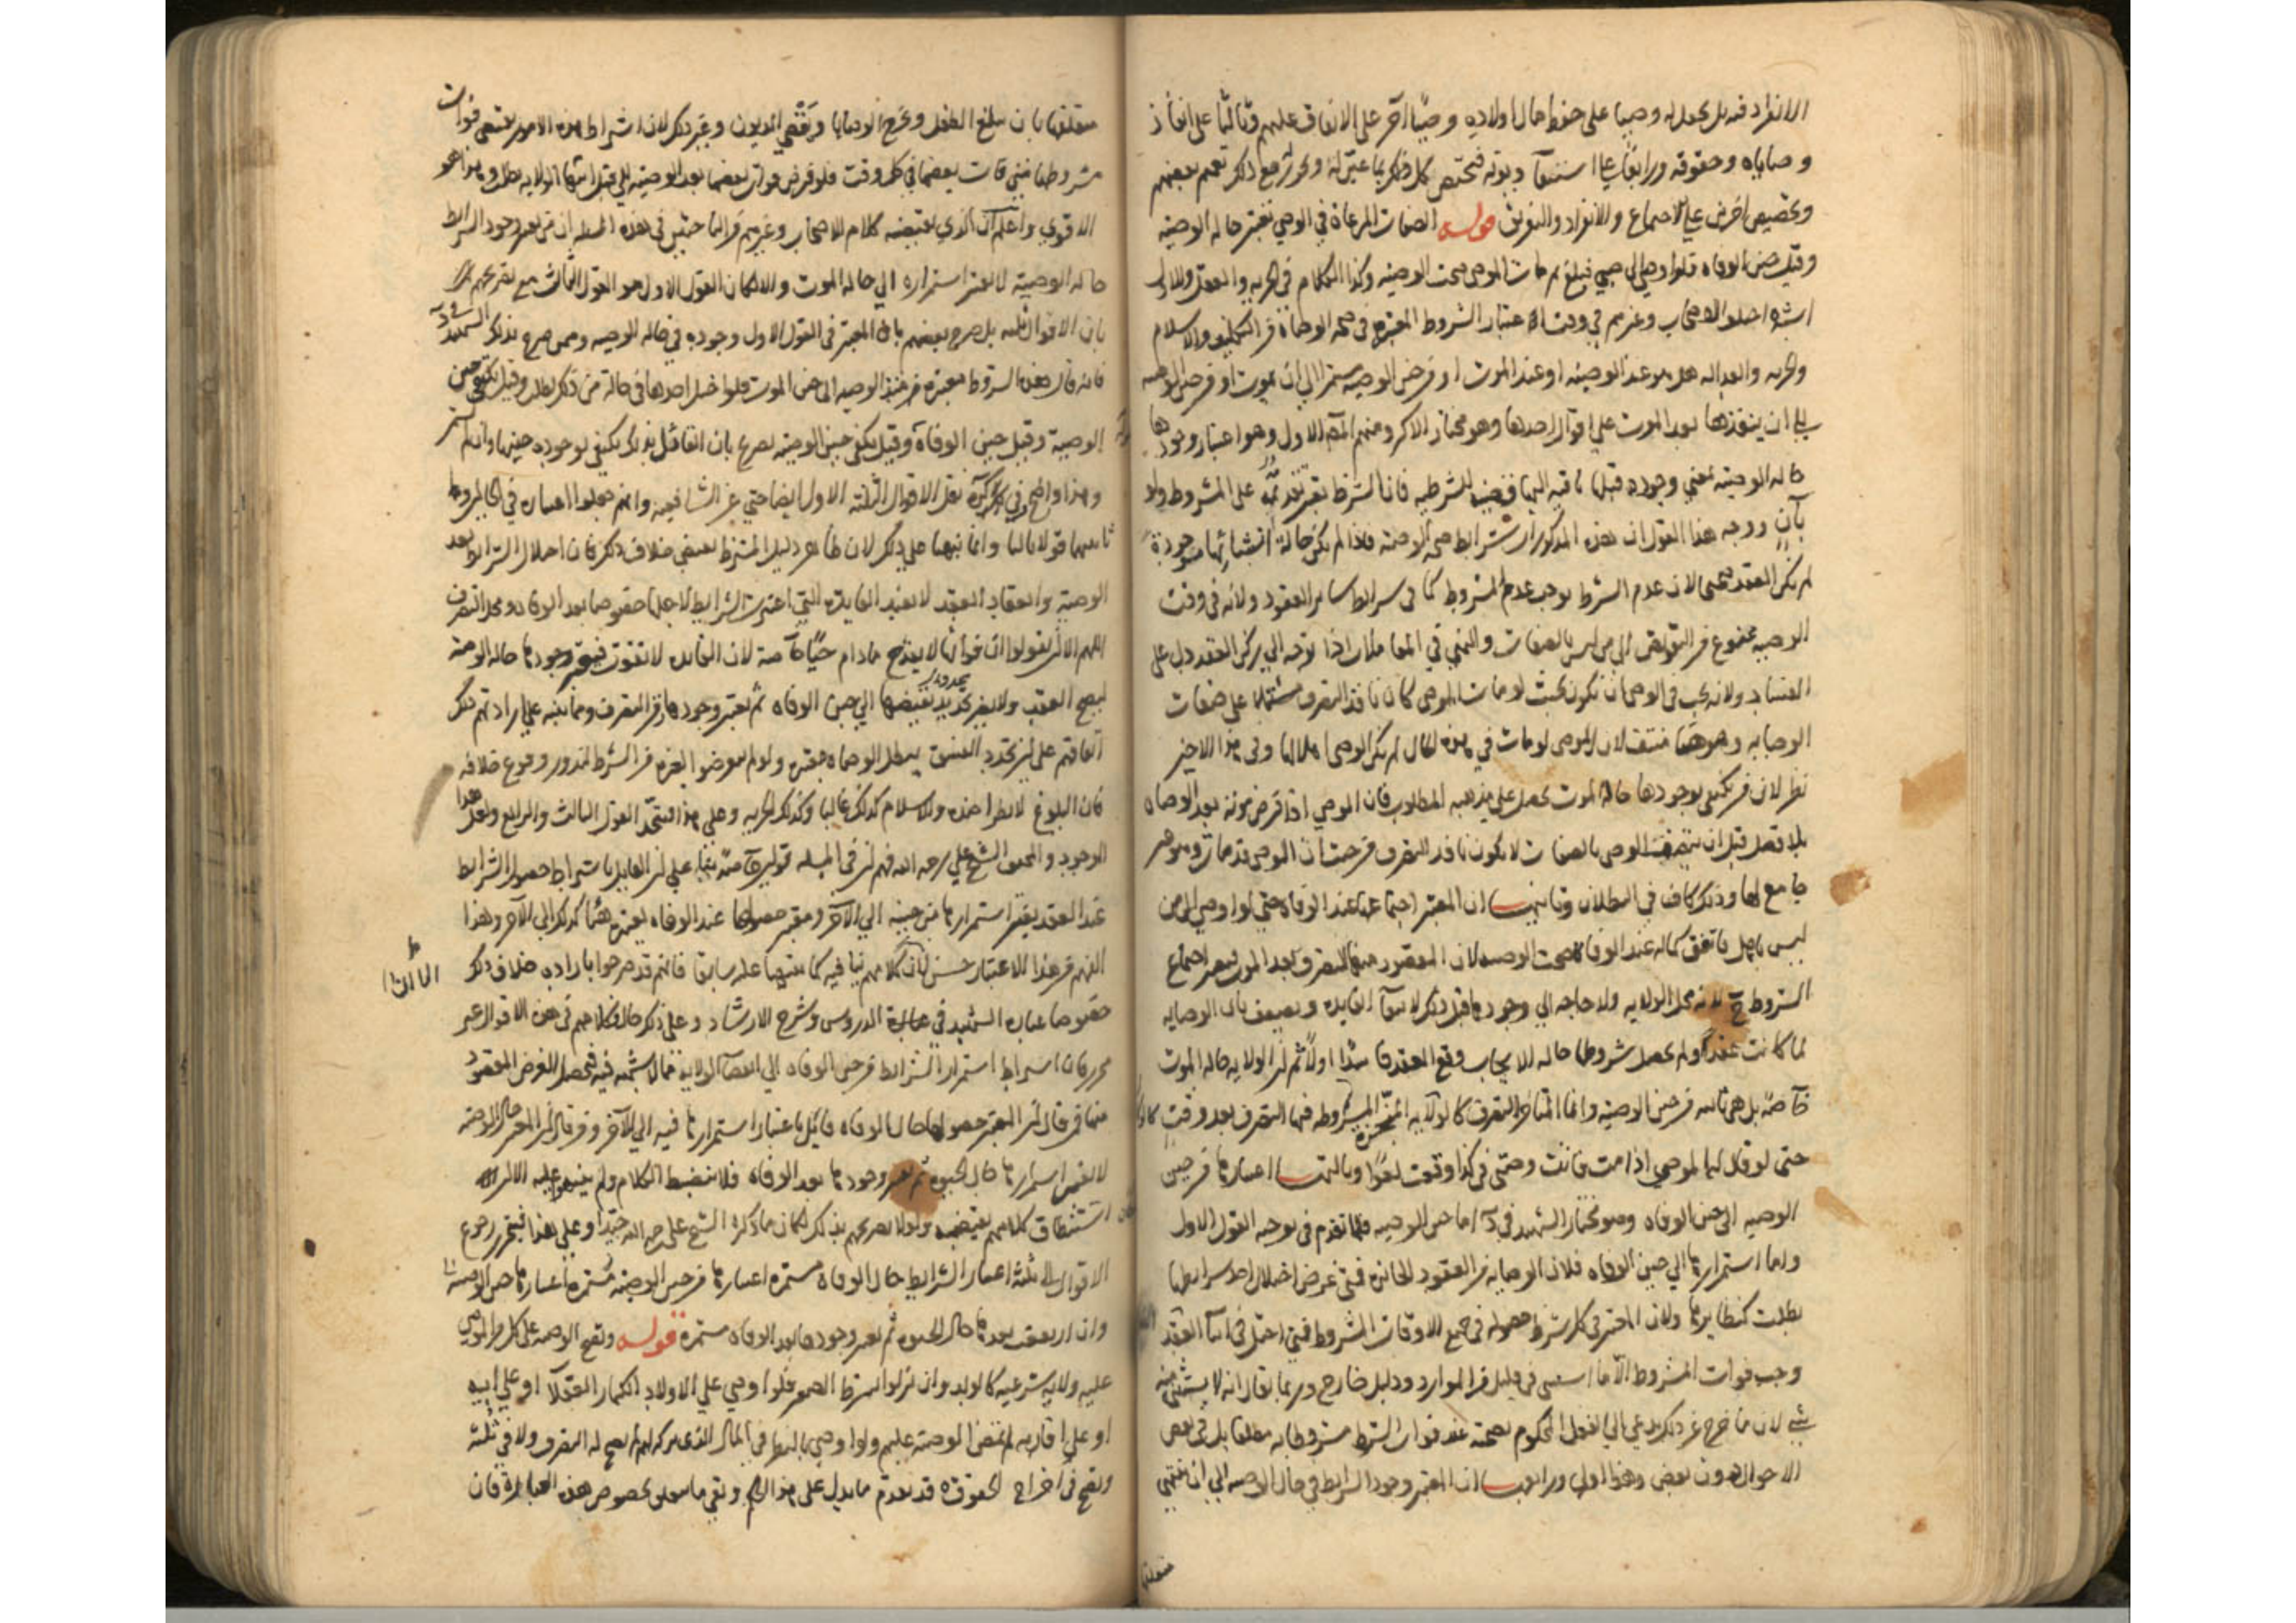 الانفراد فيه بل يجعل له وصيا على حفظ مال اولاده ووصيا آخر على الانفاق عليهم وثالثا على انفاذ
وصاياه وحقوقه ورابعا على استيفاء ديونه فيختص كل واحد بما عين له ويجوز مع ذلك تعميم بعضهم
وتخصيص آخرين على الاجتماع والانفراد والتفريق قوله الصفات المراعاة في الوصي تعتبر حالة الوصية
وقيل حين الوفاة فلو اوصى الى صبي فبلغ ثم مات الموصي صحت الوصية وكذا الكلام في الحرية والعقل والاول
اشبه اختلف الاصحاب وغيرهم في وقت اعتبار الشروط المعتبرة في صحة الوصاية من التكليف والاسلام
والحرية والعدالة هل هو عند الوصية او عند الموت او من حين الوصية مستمرا الى ان يموت او من حين الوصية
الى ان ينفذها بعد الموت على اقوال احدها وهو مختار الاكثر ومنهم المصنف الاول وهو اعتبار وجودها
حالة الوصية بمعنى وجوده قبلها
بآن ووجه هذا القول ان هذه المذكورات شرايط صحة الوصية فاذا لم يكن حالة انشائها موجودة
لم يكن العقد صحيحا لان عدم الشرط يوجب عدم المشروط كما في شرايط ساير العقود ولانه في وقت
الوصية ممنوع من التفويض الى من ليس بالصفات والنهي في المعاملات اذا توجه الى ركن العقد دل على
الفساد ولانه يجب في الوصي ان يكون بحيث لو مات الموصي كان نافذ التصرف مشتملا على صفات
الوصاية وهو هنا منتف لان الموصي لو مات في هذه الحال لم يكن الوصي اهلا لها وفي هذا الاخير
نظر لان من يكتفي بوجودها حالة الموت يحصل على مذهبه المطلوب فان الموصي اذا فرض موته بعد الوصاة
بلا فصل قبل ان يتصف الوصي بالصفات لا يكون نافذ التصرف من حيث ان الموصي قد مات وهو غير
جامع لها وذلك كاف في البطلان وثانيها ان المعتبر اجتماعها عند الوفاة حتى لو اوصى الى من
ليس باهل فاتفق كماله عند الوفاة صحت الوصية لان المقصود منها التصرف بعد الموت فيعتبر اجتماع
الشروط ح لانه محل الولاية ولا حاجة الى وجودها قبل ذلك لانتفاء الفايدة ويضعف بان الوصاية
لما كانت عقدا ولم يحصل شروطها حالة الايجاب وقع العقد فاسدا اولا ثم لنا الولاية حالة الموت
خاصة بل هي ثابتة من حين الوصية وانما المتأخر التصرف كالوكالة المنجزة المشروطة فيها التصرف بعد وقت
حتى لو قال لها الموصي اذا مت فانت وصيي في كذا وقعت لغوا وثالثها اعتبارها من حين
الوصية الى حين الوفاة وهو مختار الشهيد في اما حين الوصية فلما تقدم في توجيه القول الاول
واما استمرارها الى حين الوفاة فلان الوصاية من العقود الجائزة فمتى عرض اختلال احد شرايطها
بطلت كنظايرها ولان المعتبر في كل شرط حصوله في جميع اوقات المشروط فمتى اختل في اثناء العقد
وجب فوات المشروط الا ما استثنى في قليل من الموارد ودليل خارج وربما يقال انه لا يستثنى منه
شيء لان ما خرج عن ذلك يدعي الى الفعل المحكوم بصحته عند فوات الشرط مشروطا به مطلقا بل في بعض
الاحوال دون بعض وهذا اولى ورابعها ان المعتبر وجود الشرايط في حال الوصية الى ان ينتهي
متعلقها
متعلقها بان يبلغ الطفل ويخرج الوصايا ويقضي الديون وغير ذلك لان اشتراط هذه الامور يقتضي فوات
مشروطها متى فات بعضها في كل وقت فلو فرض فوات بعضها بعد الوصية بل قبل انتهاء الولاية بطلت وهذا هو
الاقوى واعلم ان الذي يقتضيه كلام الاصحاب وغيرهم من الباحثين في هذه المسئلة ان من يعتبر وجود الشرائط
حالة الوصية لا يعتبر استمراره الى حالة الموت والا لكان القول الاول هو القول الثالث مع تصريحهم
بان الاقوال ثلثة بل صرح بعضهم بان المعتبر في القول الاول وجوده في حالة الوصية وممن صرح بذلك الشهيد
فانه قال هذه الشروط معتبرة من حين الوصية الى حين الموت فلو اختل احدها في حالة من ذلك بطلت وقيل يكفي حين
الوصية وقيل حين الوفاة وقيل يكفي حين الوصية صرح بان القائل بذلك يكتفي بوجوده حينها وان لم يستمر
وهذا واضح وفي التذكرة نقل الاقوال الثلثة الاول ايضا حتى عن الشافعية وانهم جعلوا اعتباره في
تابعهما قولا ثالثا وانما نبهنا على ذلك لان ظاهر دليل المشترط يقتضي خلاف ذلك فان اختلال الشرائط بعد
الوصية وانعقاد العقد لا يفيد الفايدة التي اعتبرت الشرايط لاجلها خصوصا بعد الوفاة ومحل التصرف
اللهم الا ان يقولوا ان فواتها لا يقدح ما دام حيا خاصة لان الفايدة لا تفوت فيعتبر وجودها حالة الوصية
ليصح العقد ولا يضر تجدد نقيضها الى حين الوفاة ثم يعتبر وجودها في التصرف ومما ينبه على ارادتهم ذلك
اتفاقهم على ان تجدد الفسق يبطل الوصاة بموته ولو لم يعرضوا لغيره من الشرط لندور وقوع خلافه
فان البلوغ لا يطرأ ضده والاسلام كذلك غالبا وكذلك الحرية وعلى هذا فيتحد القول الثالث والرابع ولعل هذا
الوجود والمحقق الشيخ علي رحمه الله فهم ان في المسئلة قولين خاصة بناء على ان القايل باشتراط حصول الشرائط
عند العقد يعتبر استمرارها من حينه الى الآخر ومعتبر حصولها عند الوفاة يعتبره هنا كذلك الى الآخر وهذا
الفهم من هذا الاعتبار حسن الا ان كلامهم ينافيه كما نبهنا عليه سابقا فانهم قد صرحوا بارادة خلاف ذلك
خصوصا عبارة الشهيد في عبارة الدروس وشرح الارشاد وعلى ذلك حال كلامهم في هذه الاقوال غير
محرر فان اشتراط استمرار الشرائط من حين الوفاة الى انقضاء الولاية مما لا شبهة فيه فيحصل الغرض المقصود
منها فمن قال ان المعتبر حصولها حال الوفاة قائل باعتبار استمرارها فيه الى الآخر ومن قال ان المعتبر حال الوصية
لا يعتبر استمرارها حال الحيوة ثم يعتبر وجودها بعد الوفاة فلا ينضبط الكلام ولم ينبهوا عليه الا ان
استنطاق كلامهم يقتضيه ولولا تصريحهم بذلك لكان ما ذكره الشيخ علي رحمه الله جيدا وعلى هذا فيتحرر رجوع
الاقوال الى ثلثة اعتبار الشرايط حال الوفاة مستمرة اعتبارها من حين الوصية مستمرة اعتبارها حين الوصية
وان لم يتفق بعدها حال الحيوة ثم يعتبر وجودها بعد الوفاة مستمرة قوله وتصح الوصية على كل من للموصي
عليه ولاية شرعية كالولد وان نزلوا بشرط الصغر فلو اوصى على الاولاد الكبار العقلاء او على ابيه
او على اقاربه لم تمض الوصية عليهم ولو اوصى بالنظر في المال الذي تركه لهم لم يصح له التصرف ولا في ثلثه
وتصح في اخراج الحقوق قد تقدم ما يدل على هذا الحكم وبقي ما يتعلق بخصوص هذه العبارة فان